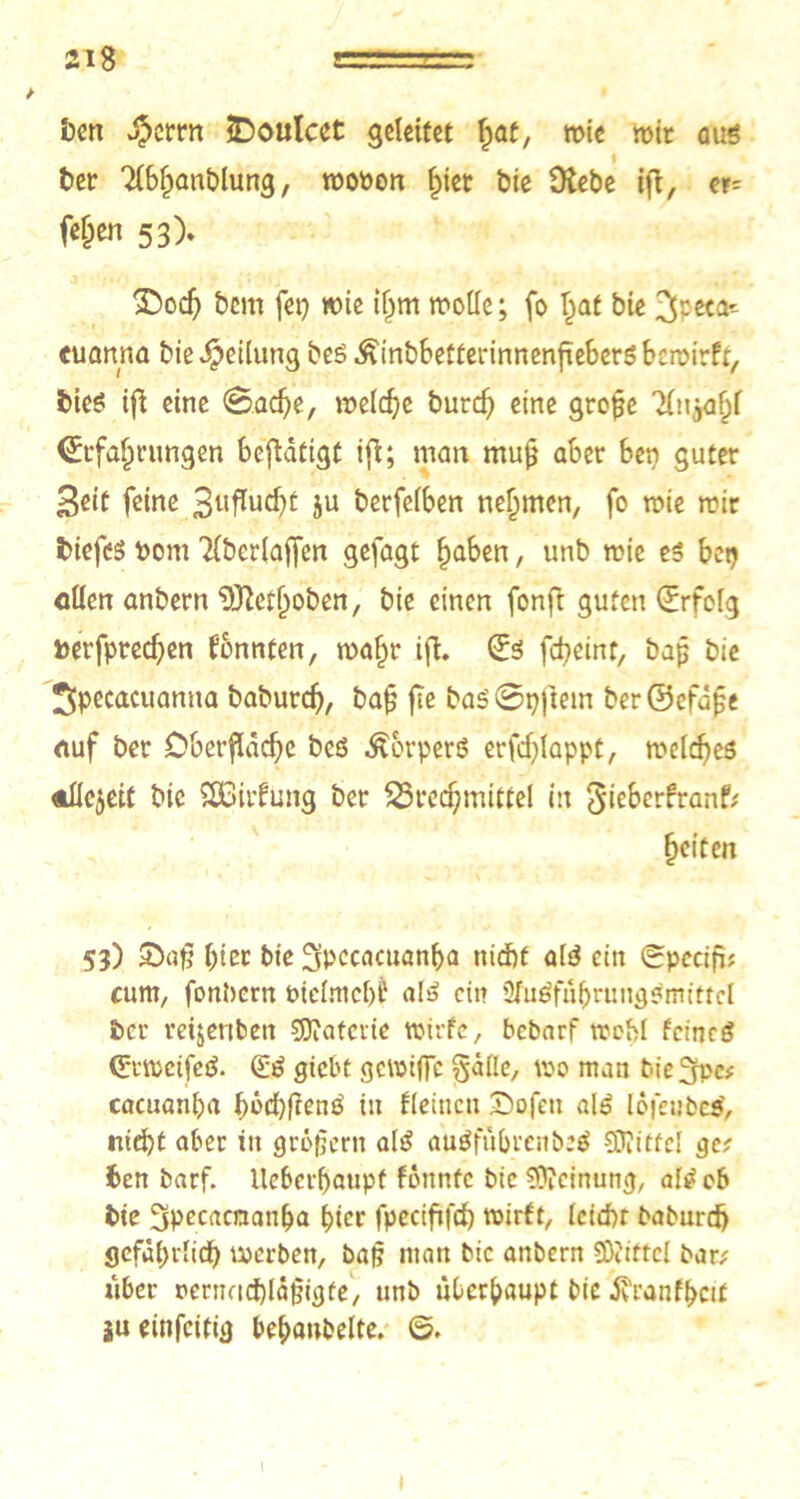 218
den Herrn Doulcet geleitet hat, wie wir aus
der Abhandlung, wovon hier die Rede ist, er=
sehen 53).
Doch dem sey wie ihm wolle; so hat die Ipeca=
cuanna die Heilung des Kindbetterinnenfiebers bewirkt,
dies ist eine Sache, welche durch eine große Anzahl
Erfahrungen bestätigt ist; man muß aber bey guter
Zeit seine Zuflucht zu derselben nehmen, so wie wir
dieses vom Aderlassen gesagt haben, und wie es bey
allen andern Methoden, die einen sonst guten Erfolg
versprechen könnten, wahr ist. Es scheint, daß die
Ipecacuanna dadurch, daß sie das System der Gefäße
auf der Oberfläche des Körpers erschlappt, welches
allezeit die Wirkung der Brechmittel in Fieberkrank=
heiten
53) Daß hier die Ipecacuanha nicht als ein Specifi=
cum, sondern vielmehr als ein Ausführungsmittel
der reizenden Materie wirke, bedarf wohl keines
Erweises. Es giebt gewisse Fälle, wo man die Ipe=
cacuanha höchstens in kleinen Dosen als lösendes,
nicht aber in größern als ausführendes Mittel ge=
ben darf. Ueberhaupt könnte die Meinung, als ob
die Ipecacuanha hier specifisch wirkt, leicht dadurch
gefährlich werden, daß man die andern Mittel dar=
über vernachläßigte, und überhaupt die Krankheit
zu einseitig behandelte. S.